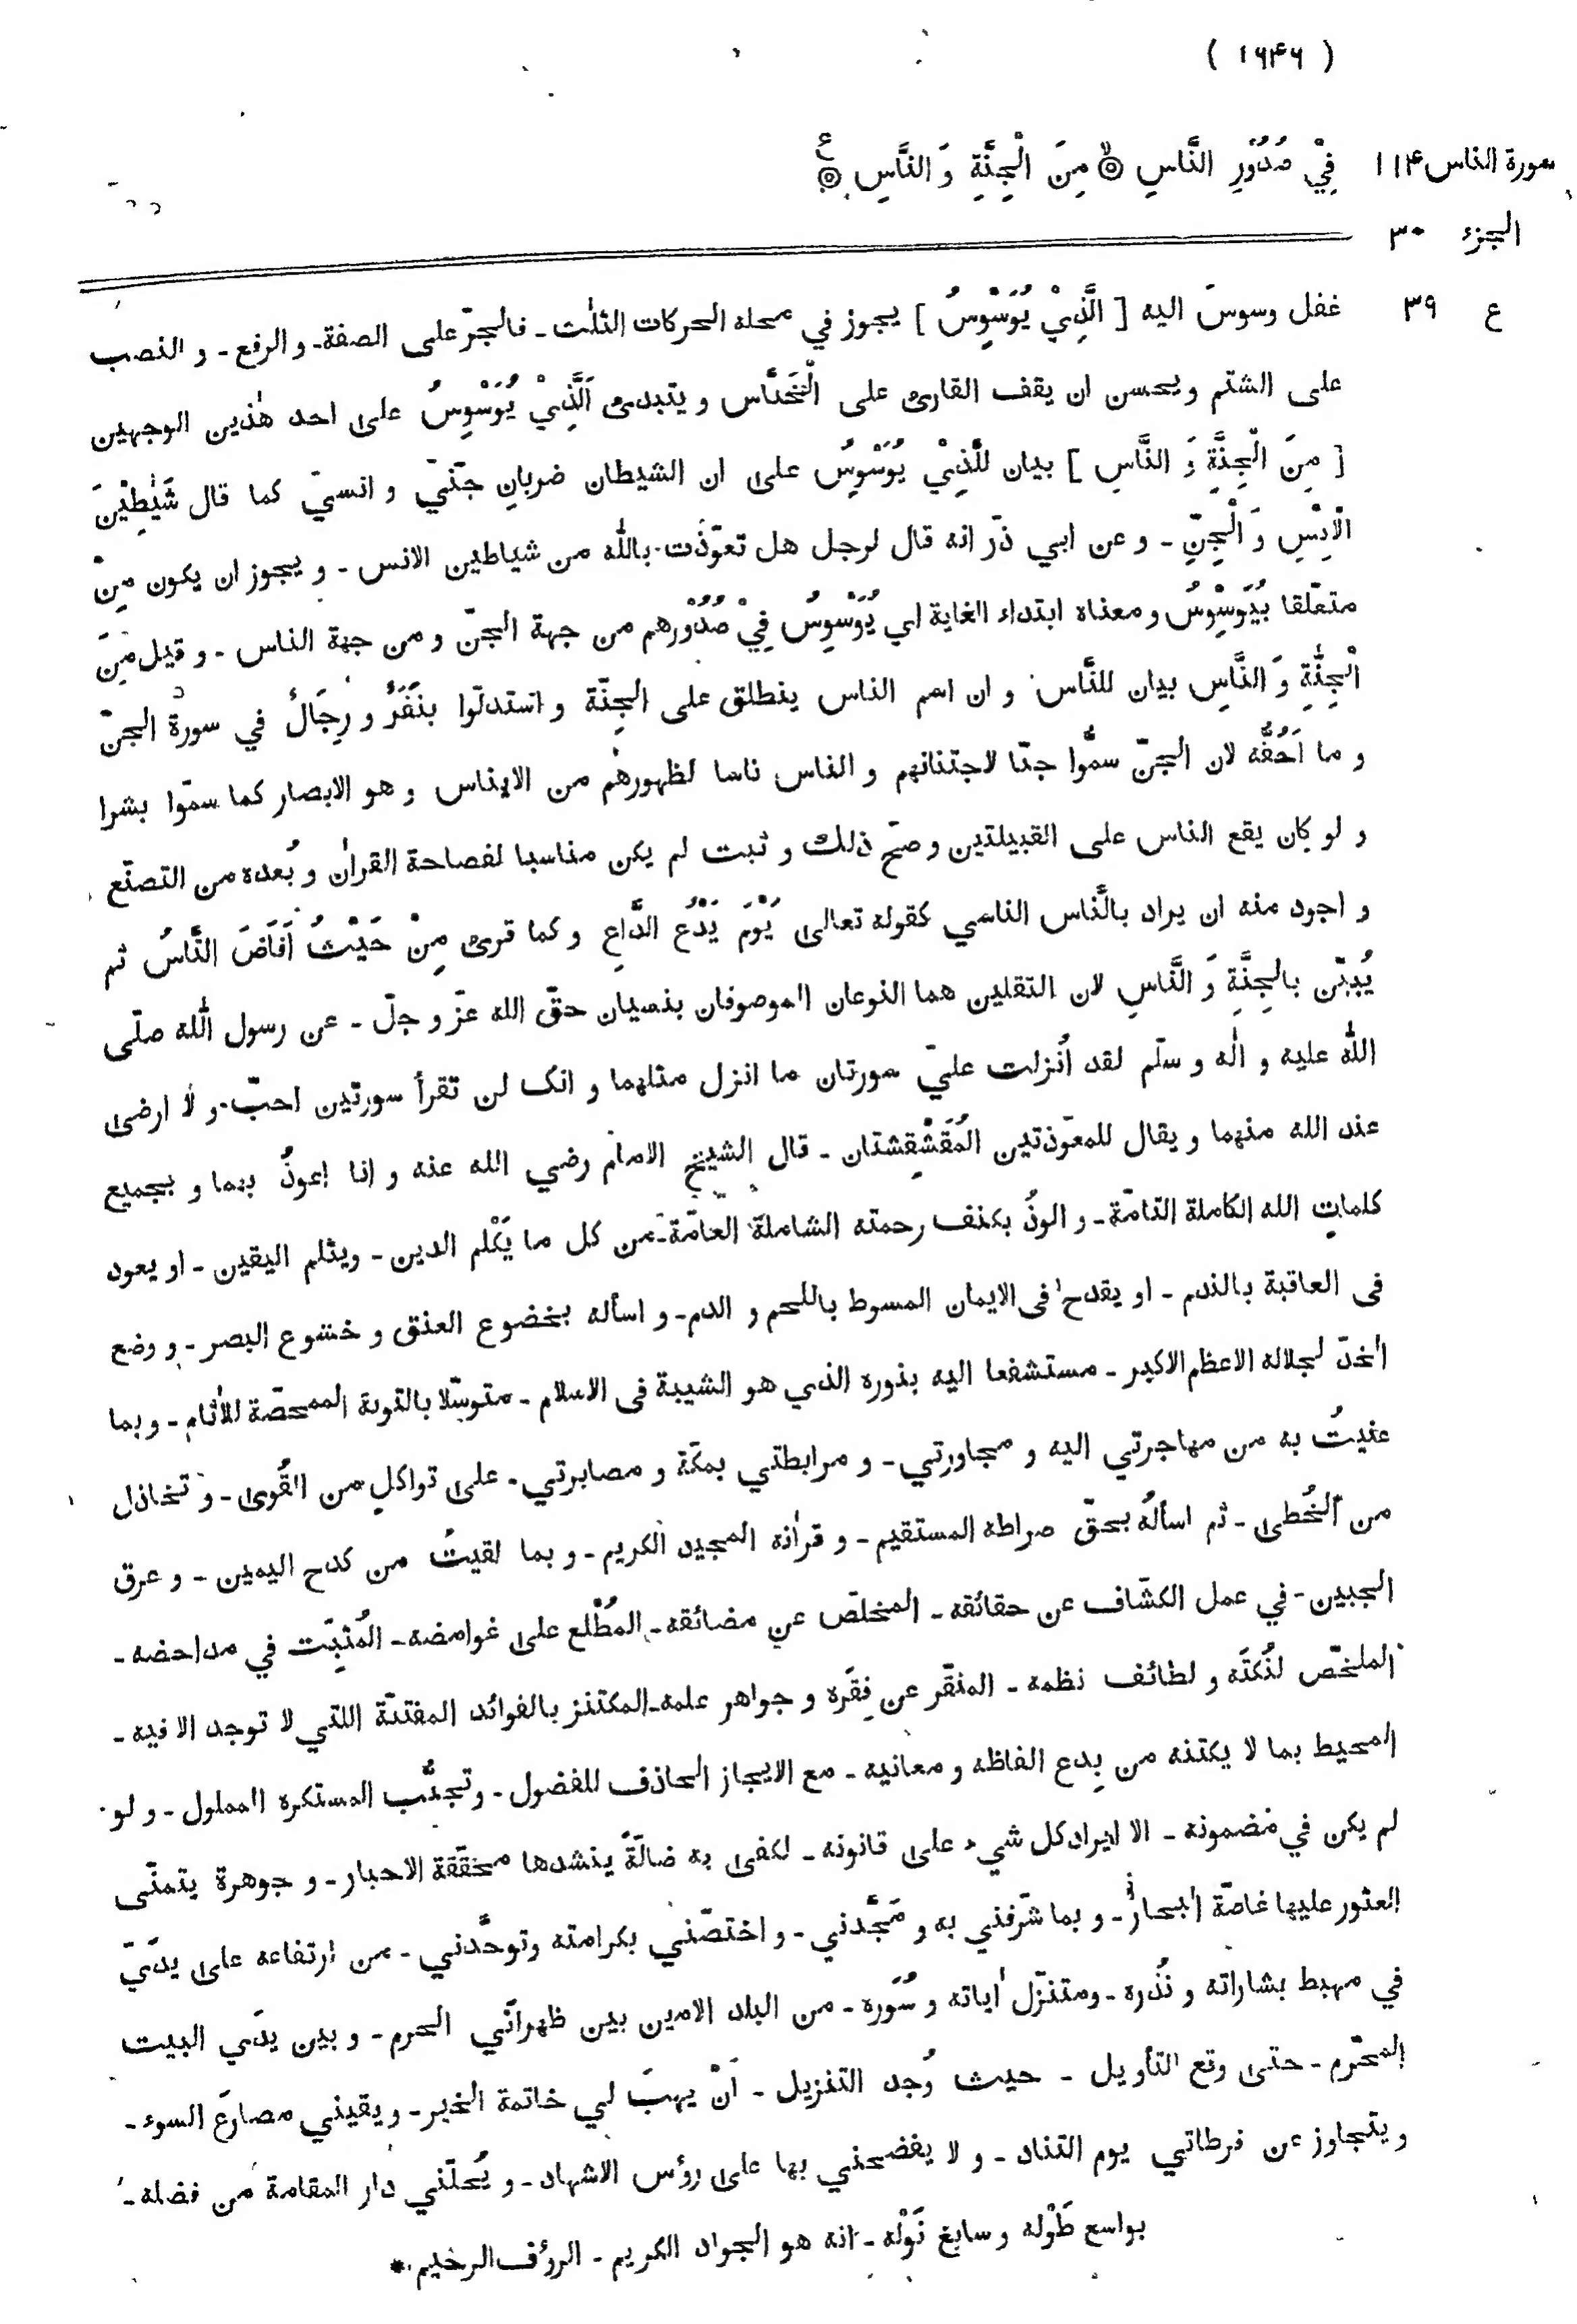 ( ۱۶۴۶ )
سورة الناس ۱۱۴ فِيْ صُدُوْرِ النَّاسِ ۞ مِنَ الْجِنَّةِ وَ النَّاسِ ۞ ع
الجزء ۳۰
ع ۳۹ غفل وسوسَ اليه [ الَّذِيْ يُوَسْوِسُ ] يجوز في محله الحركات الثلٰث ـ فالجرّ على الصفة ـ و الرفع ـ و النصب
على الشتم و يحسن ان يقف القارئ على الْخَنَّاس و يبتدئ اَلَّذِيْ يُوَسْوِسُ على احد هٰذين الوجهين
[ مِنَ الْجِنَّةِ وَ النَّاسِ ] بيان للَّذِيْ يُوَسْوِسُ على ان الشيطان ضربانِ جنّيّ و انسيّ كما قال شَيٰطِيْنَ
الْاِنْسِ وَ الْجِنِّ ـ و عن ابي ذرّ انه قال لرجل هل تعوّذت بالله من شياطين الانس ـ و يجوز ان يكون مِنْ
متعلّقا بيُوَسْوِسُ و معناه ابتداء الغاية اي يُوَسْوِسُ فِيْ صُدُوْرهم من جهة الجنّ و من جهة الناس ـ و قيل مِنَ
الْجِنَّةِ وَ النَّاسِ بيان للنَّاس و ان اسم الناس ينطلق على الجِنّة و استدلّوا بنَفَرٌ و رِجَالٌ في سورة الجنّ
و ما اَحُقُّه لان الجنّ سمُّوا جنّا لاجتنانهم و الناس ناسا لظهورهم من الايناس و هو الابصار كما سمّوا بشرا
و لو كان يقع الناس على القبيلتين و صحّ ذلك و ثبت لم يكن مناسبا لفصاحة القراٰن و بُعده من التصنّع
و اجود منه ان يراد بالنَّاس الناسي كقوله تعالى يَوْمَ يَدْعُ الدَّاعِ و كما قرئ مِنْ حَيْثُ اَفَاضَ النَّاسُ ثم
يُبيّن بالجِنَّةِ وَ النَّاسِ لان الثقلين هما النوعان الموصوفان بنسيان حقّ الله عزّ و جلّ ـ عن رسول الله صلّى
الله عليه و اٰله و سلّم لقد اُنزلت عليّ سورتان ما انزل مثلهما و انك لن تقرأ سورتين احبّ و لا ارضى
عند الله منهما و يقال للمعوّذتين المُقَشْقِشتان ـ قال الشيخ الامام رضي الله عنه و انا اعوذُ بهما و بجميع
كلماتِ الله الكاملة التامّة ـ و الوذُ بكنف رحمته الشاملة العامّة ـ من كل ما يَكْلم الدين ـ ويثلم اليقين ـ او يعود
فى العاقبة بالندم ـ او يقدح فى الايمان المسوط باللحم و الدم ـ و اسأله بخضوع العنق و خشوع البصر ـ و وضع
الخدّ لجلاله الاعظم الاكبر ـ مستشفعا اليه بنوره الذي هو الشيبة فى الاسلام ـ متوسّلا بالتوبة الممحّصة للاٰثام ـ و بما
عنيتُ به من مهاجرتي اليه و مجاورتي ـ و مرابطتي بمكّة و مصابرتي ـ على تواكلٍ من القُوى ـ و تخاذل
من الخُطى ـ ثم اسألهُ بحقّ صراطه المستقيم ـ و قراٰنه المجيد الكريم ـ و بما لقيتُ من كدح اليمين ـ و عرق
الجبين ـ في عمل الكشّاف عن حقائقه ـ المخلّص عن مضائقه ـ المُطّلع على غوامضه ـ المُثبِّت في مداحضه ـ
الملخّص لنُكتَه و لطائف نظمه ـ المنقّر عن فِقَره و جواهر علمه ـ المكتنز بالفوائد المفتنّة اللتي لا توجد الا فيه ـ
المحيط بما لا يكتنه من بِدع الفاظه و معانيه ـ مع الايجاز الحاذف للفضول ـ و تجنُّب المستكره المملول ـ و لو
لم يكن في مضمونه ـ الا ايراد كل شيء على قانونه ـ لكفى به ضالّةً ينشدها محقّقة الاحبار ـ و جوهرة يتمنّى
العثور عليها غاصّة البحار ـ و بما شرّفني به و مجّدني ـ و اختصّني بكرامته وتوحّدني ـ من ارتفاعه على يدَيّ
في مهبط بشاراته و نُذره ـ و متنزّل اٰياته و سُوَره ـ من البلد الامين بين ظهرانَي الحرم ـ و بين يدَي البيت
المحرّم ـ حتى وقع التأويل ـ حيث وُجد التنزيل ـ اَنْ يهبَ لي خاتمة الخير ـ و يقيني مصارعَ السوء ـ
و يتجاوز عن فرطاتي يوم التناد ـ و لا يفضحني بها على رؤس الاشهاد ـ و يُحلّني دار المقامة من فضله ـ
بواسع طَوْله و سابغ نَوْله ـ انه هو الجواد الكريم ـ الرؤف الرحيم *